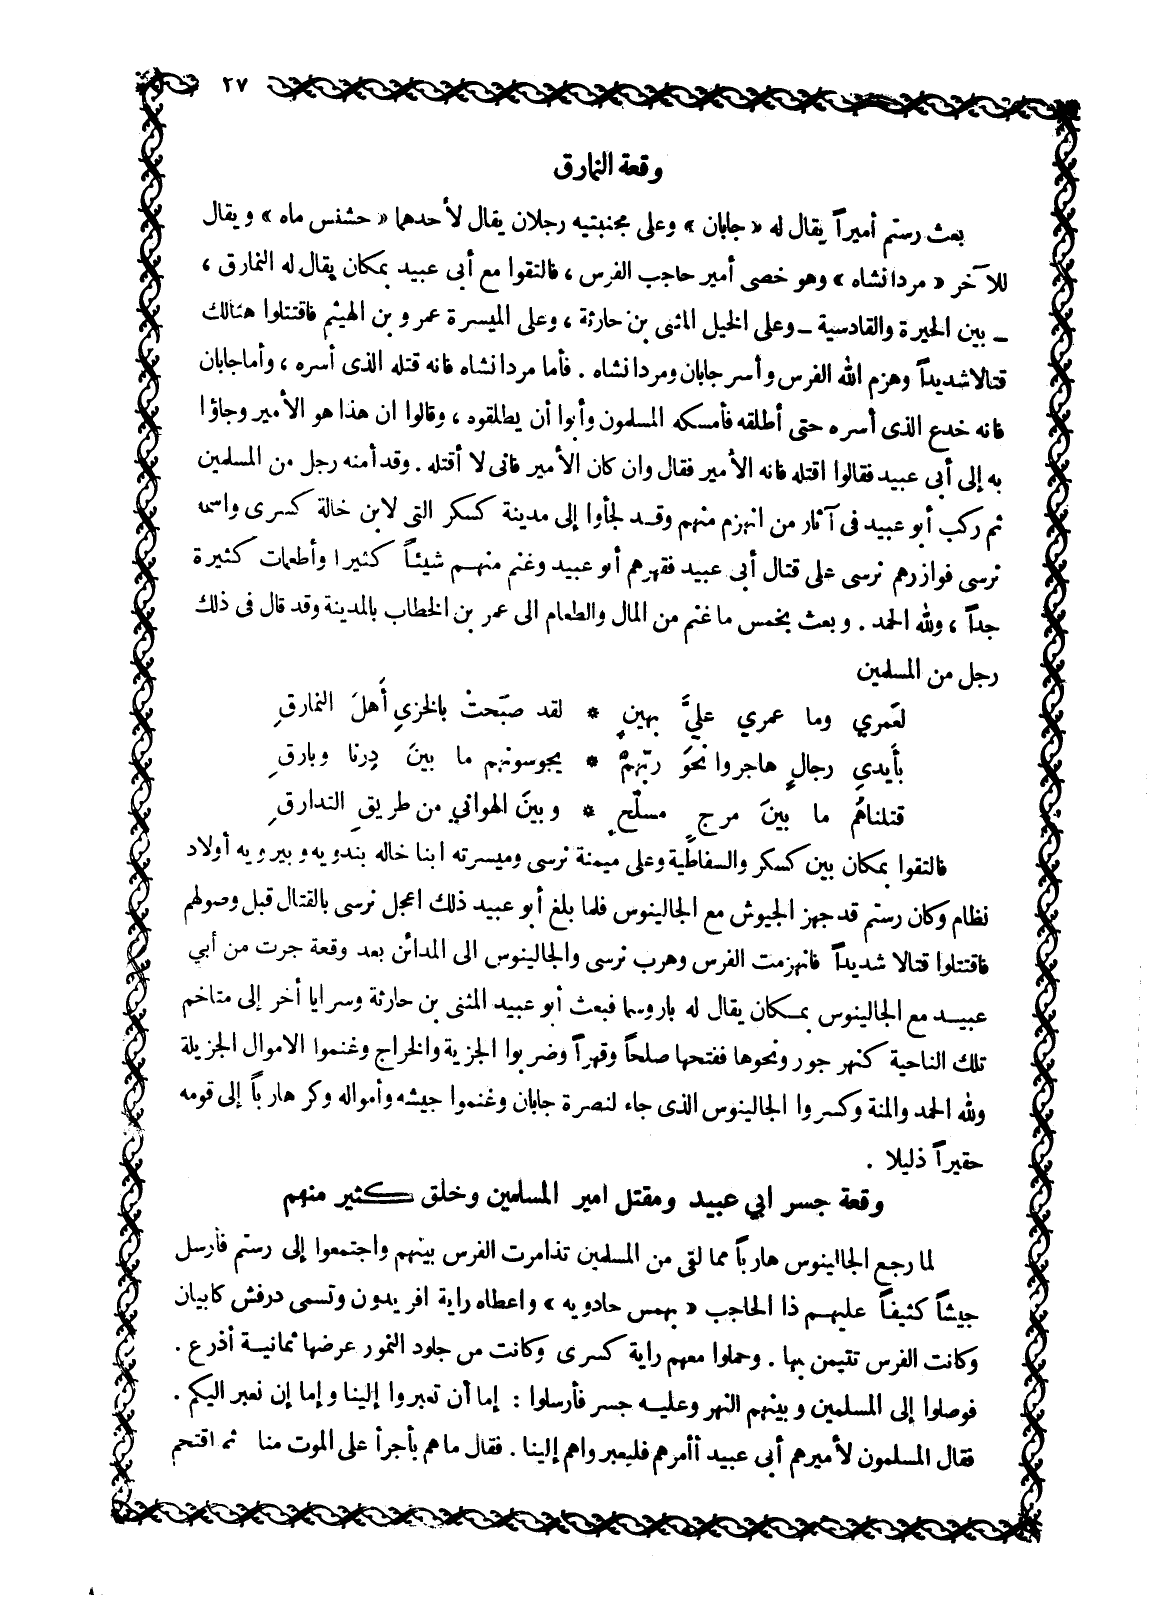 ٢٧
وقعة النمارق
بعث رستم أميراً يقال له « جابان » وعلى مجنبتيه رجلان يقال لأحدهما « حشنس ماه » ويقال
للآخر « مردانشاه » وهو خصى أمير حاجب الفرس ، فالتقوا مع أبى عبيد بمكان يقال له النمارق ،
ــ بين الحيرة والقادسية ــ وعلى الخيل المثنى بن حارثة ، وعلى الميسرة عمرو بن الهيثم فاقتتلوا هنالك
قتالا شديداً وهزم الله الفرس وأسر جابان ومردانشاه . فأما مردانشاه فانه قتله الذى أسره ، وأما جابان
فانه خدع الذى أسره حتى أطلقه فأمسكه المسلمون وأبوا أن يطلقوه ، وقالوا ان هذا هو الأمير وجاؤا
به إلى أبى عبيد فقالوا اقتله فانه الأمير فقال وان كان الأمير فانى لا أقتله . وقد أمنه رجل من المسلمين
ثم ركب أبو عبيد فى آثار من انهزم منهم وقد لجأوا إلى مدينة كسكر التى لابن خالة كسرى واسمه
نرسى فوازرهم نرسى على قتال أبى عبيد فقهرهم أبو عبيد وغنم منهم شيئاً كثيرا وأطعمات كثيرة
جداً ، ولله الحمد . وبعث بخمس ما غنم من المال والطعام الى عمر بن الخطاب بالمدينة وقد قال فى ذلك
رجل من المسلمين
لعَمري وما عمري عليَّ بهينٍ * لقد صبّحتْ بالخزيِ أَهلَ النمارقِ
بأَيدي رجالٍ هاجروا نحوَ ربّهمْ * يجوسونهم ما بينَ دِرنا وبارقِ
قتلناهُم ما بينَ مرجِ مسلّحٍ * وبينَ الهواني من طريقِ التدارقِ
فالتقوا بمكان بين كسكر والسفاطية وعلى ميمنة نرسى وميسرته ابنا خاله بندويه وبيرويه أولاد
نظام وكان رستم قد جهز الجيوش مع الجالينوس فلما بلغ أبو عبيد ذلك اعجل نرسى بالقتال قبل وصولهم
فاقتتلوا قتالا شديداً فانهزمت الفرس وهرب نرسى والجالينوس الى المدائن بعد وقعة جرت من أبي
عبيد مع الجالينوس بمكان يقال له باروسما فبعث أبو عبيد المثنى بن حارثة وسرايا أخر إلى متاخم
تلك الناحية كنهر جور ونحوها ففتحها صلحاً وقهراً وضربوا الجزية والخراج وغنموا الاموال الجزيلة
ولله الحمد والمنة وكسروا الجالينوس الذى جاء لنصرة جابان وغنموا جيشه وأمواله وكر هارباً إلى قومه
حقيراً ذليلا .
وقعة جسر ابي عبيد ومقتل امير المسلمين وخلق كثير منهم
لما رجع الجاالينوس هارباً مما لقى من المسلمين تذامرت الفرس بينهم واجتمعوا إلى رستم فأرسل
جيشاً كثيفاً عليهم ذا الحاجب « بهمس حادويه » واعطاه راية افريدون وتسمى درفش كابيان
وكانت الفرس تتيمن بها . وحملوا معهم راية كسرى وكانت من جلود النمور عرضها ثمانية أذرع .
فوصلوا إلى المسلمين وبينهم النهر وعليه جسر فأرسلوا : إما أن تعبروا إلينا وإما إن نعبر اليكم .
فقال المسلمون لأميرهم أبى عبيد أأمرهم فليعبروا هم إلينا . فقال ما هم بأجرأ على الموت منا ثم اقتحم